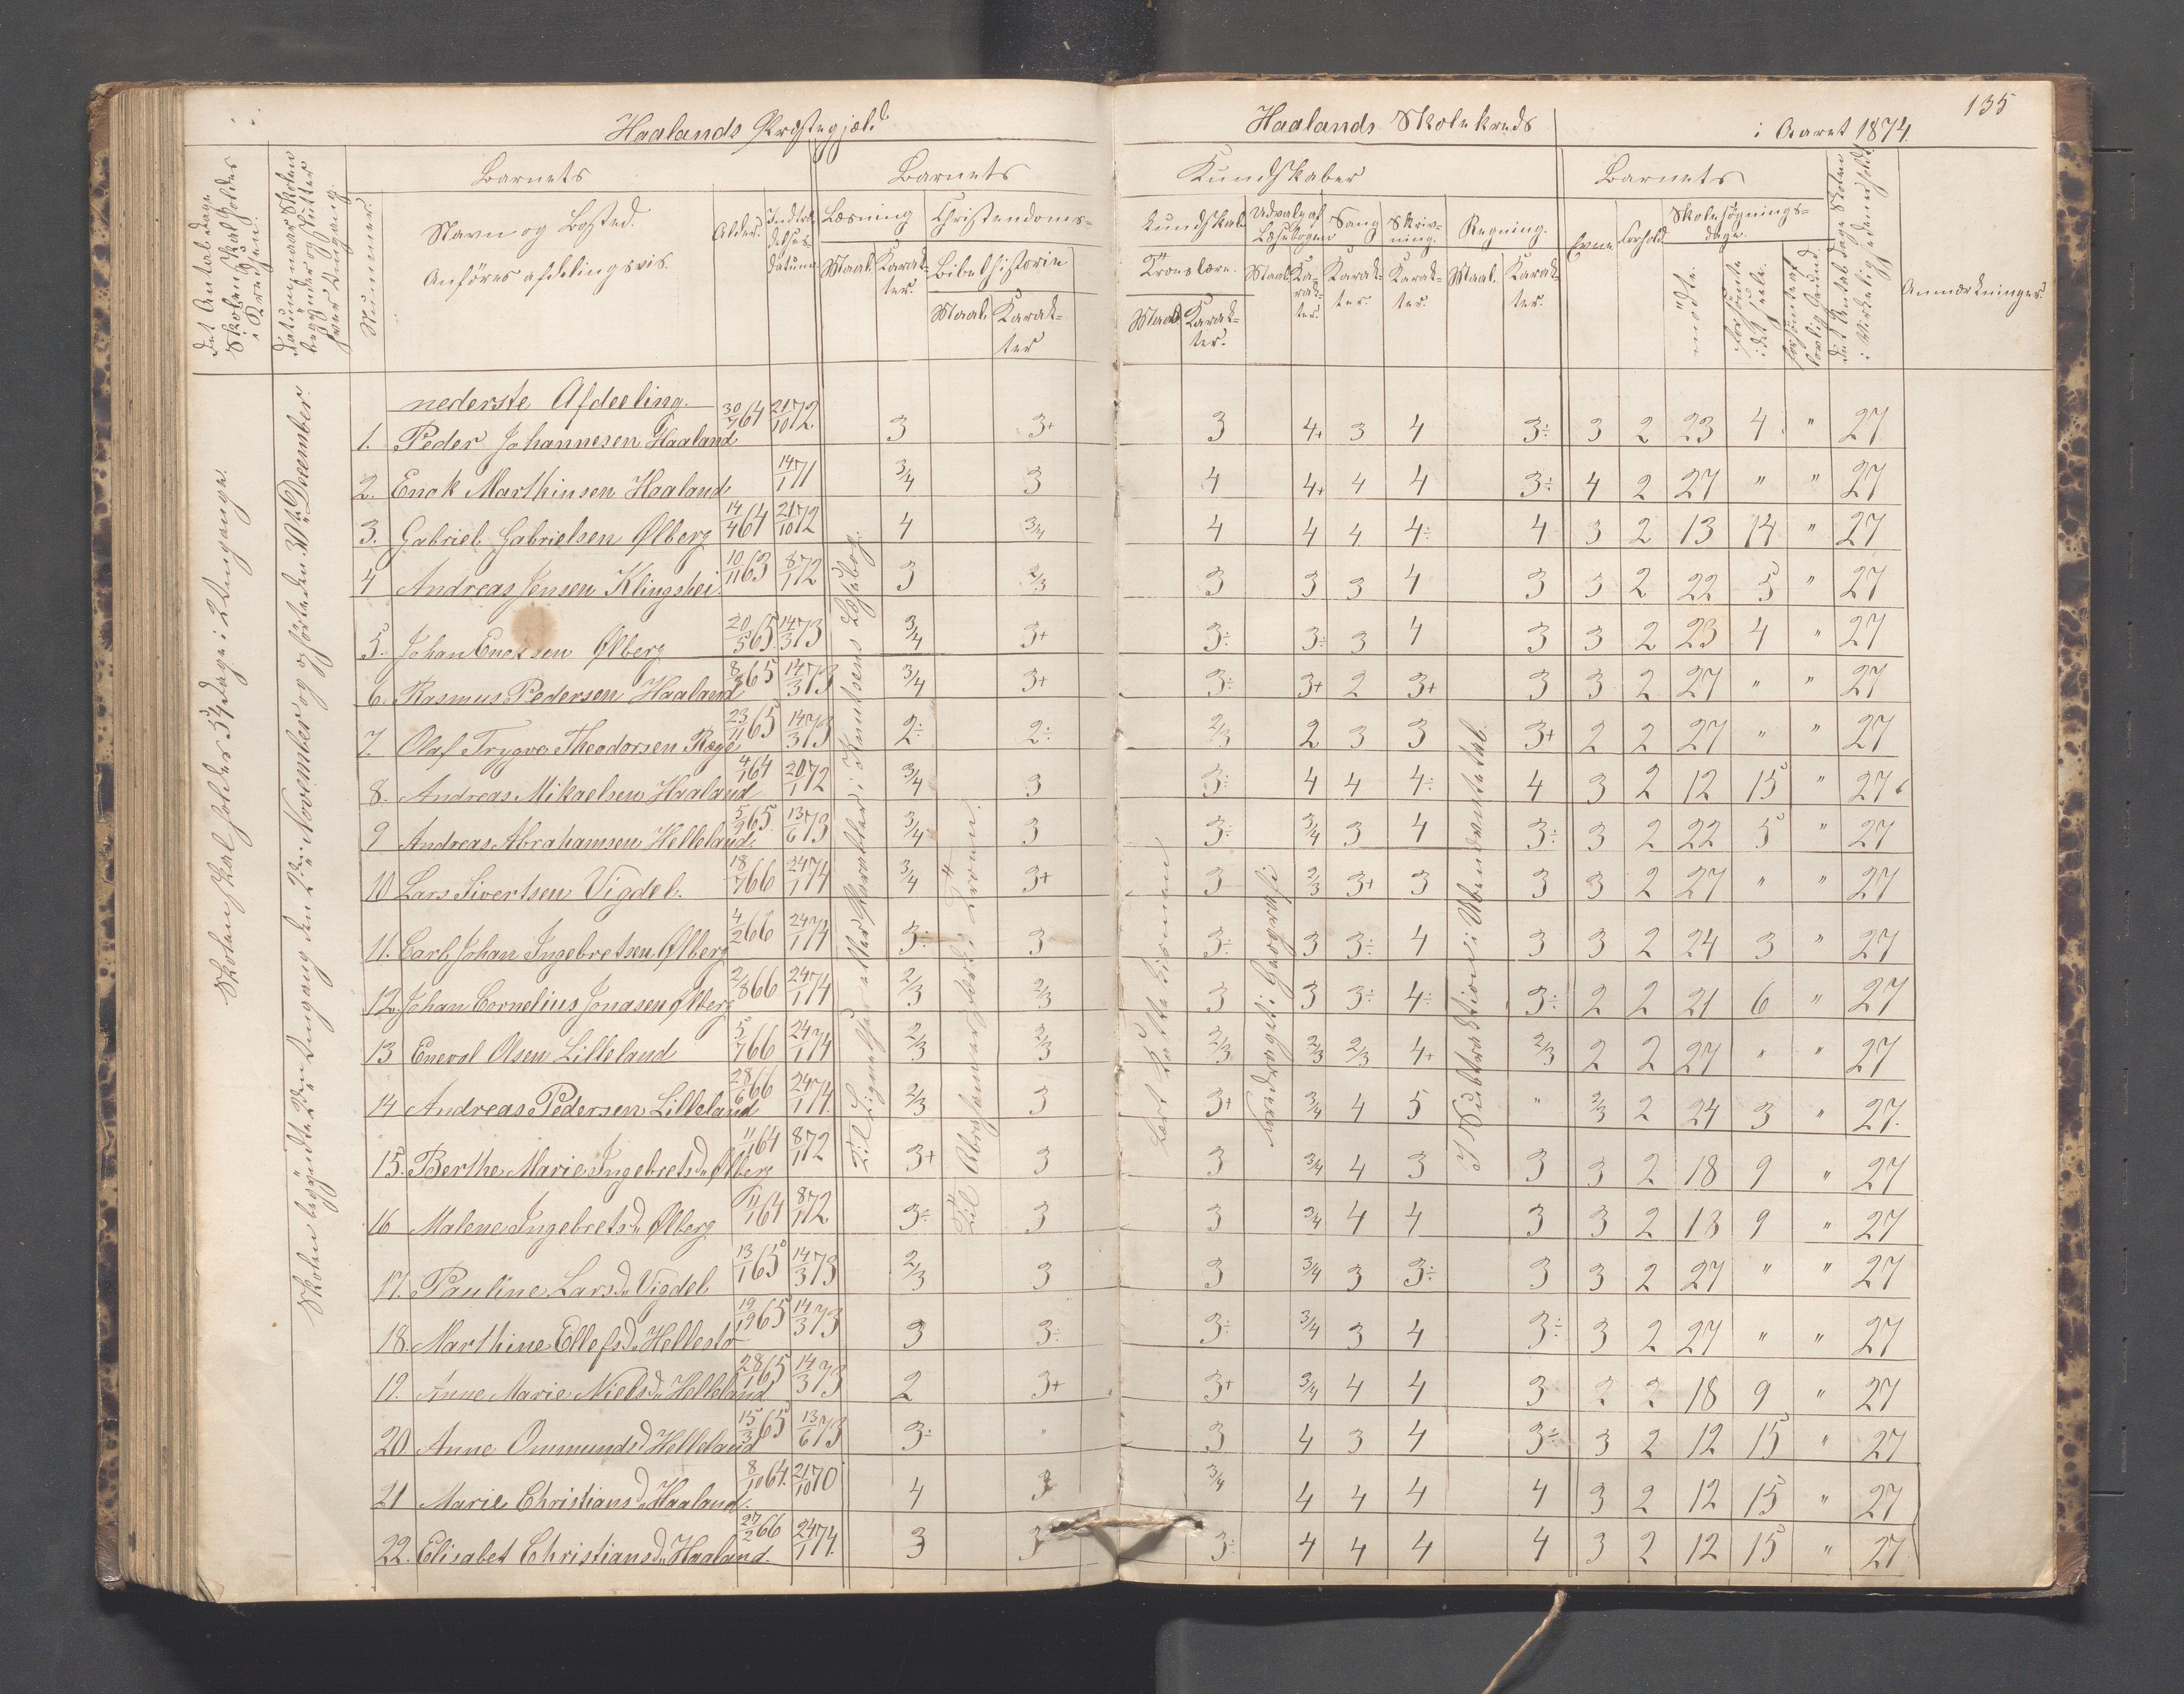 135
Haalands Præstegjæld
Haalands Skolekreds
i Aaret 1874.
Det Antal Dage Skolen skal holdes i Kredsen.
Datum naar Skolen begynder og slutter hver Omgang.
Nummer.
Barnets
Navn og Bosted.
Anføres afdelingsvis.
Alder.
Indtrædelsesdatum
Barnets
Læsning
Maal.
Karakter.
Christendoms-
Bibelhistorie
Maal.
Karakter
Kundskaber
Kundskab.
Troeslære.
Maal
Karakter.
Udvalg af Læsebogen
Maal.
Karakter.
Sang
Karakter.
Skrivning.
Karakter.
Regning.
Maal.
Karakter.
Barnets
Evne
Forhold
Skolesøgnings-dage.
mødte.
forsømte i det Hele.
forsømte af lovlig Grund.
Det Antal Dage Skolen i Virkeligheden er holdt.
Anmærkninger.
Skolen skal holdes 54 Dage i 2 Omgange.
Skolen begyndte 2den Omgang den 2den November og ophørte den 30te December.
nederste Afdeeling.
1. Peder Johannesen Haaland 30/7 64 21/10 72 3 3+ 3 4+ 3 4 3÷ 3 2 23 4 " 27
2. Enok Marthinsen Haaland 14/1 71 3/4 3 4 4+ 4 4 3÷ 4 2 27 " " 27
3. Gabriel Gabrielsen Ølberg 14/4 64 21/10 72 4 3/4 4 4 4 4÷ 4 3 2 13 14 " 27
4 Andreas Jensen Klingshei. 10/11 63 8/1 72 3 2/3 3 3 3 4 3 3 2 22 5 " 27
5. Johan Enoksen Ølberg 20/5 65. 14/3 73 3/4 3+ 3÷ 3÷ 3 4 3 3 2 23 4 " 27
6. Rasmus Pedersen Haaland 8/3 65 14/3 73 3/4 3+ 3÷ 3+ 2 3+ 3 3 2 27 " " 27
7. Olaf Trygve Theodorsen Rege 23/11 65 14/3 73 2÷ 2÷ 2/3 2 3 3 3+ 2 2 27 " " 27
8. Andreas Mikaelsen Haaland 4/1 64 20/1 72 3/4 3 3÷ 4 4 4÷ 4 3 2 12 15 " 27
9 Andreas Abrahamsen Helleland. 5/9 65. 13/6 73 3/4 3 3÷ 3/4 3 4 3÷ 3 2 22 5 " 27
10 Lars Sivertsen Vigdel. 18/7 66 24/1 74 3/4 3+ 3 2/3 3+ 3 3 3 2 27 " " 27
11. Carl Johan Ingebretsen Ølberg 4/2 66 24/1 74 3÷ 3 3÷ 3 3÷ 4 3 3 2 24 3 " 27
12. Johan Cornelius Jonasen Ølberg 2/8 66 24/1 74 2/3 2/3 3 3 3÷ 4÷ 3÷ 2 2 21 6 " 27
13 Enevol Olsen Lilleland 5/7 66 24/1 74 2/3 2/3 2/3 2/3 2/3 4+ 2/3 2 2 27 " " 27
14 Andreas Pedersen Lilleland 28/6 66 24/1 74. 2/3 3 3+ 3/4 4 5 " 2/3 2 24 3 " 27.
15. Berthe Marie Ingebretsd. Ølberg 11/1 64 8/1 72 3+ 3 3 3/4 4 3 3 3 2 18 9 " 27
16 Malene Ingebretsd. Ølberg 11/1 64 8/1 72 3÷ 3 3 3/4 4 4 3 3 2 18 9 " 27
17. Pauline Larsd. Vigdel 13/1 65 14/3 73 2/3 3 3 3/4 3 3÷ 3 3 2 27 " " 27
18. Marthine Ellefsd. Hellestø 19/9 65 14/3 73 3 3÷ 3÷ 3/4 3 4 3÷ 3 2 27 " " 27
19. Anne Marie Nielsd. Helleland 28/1 65 14/3 73 2 3+ 3+ 3/4 4 4 3 2 2 18 9 " 27
20. Anne Ommundsd Helleland 15/3 65 13/6 73 3÷ " 3 4 3 4 3÷ 3 2 12 15 " 27
21 Marie Christiansd. Haaland. 8/10 64. 21/10 70 4 3 3/4 4 4 4 4 3 2 12 15 " 27
22. Elisabet Christiansd. Haaland. 27/2 66 24/1 74. 3 3 3÷ 4 4 4 4 3 2 12 15 " 27
Til Lignelser eller Parabler i Knutsens Læsebog.
Til Abrahams
Lært
Foredraget i Geografi
I Subtraktion i Ubenævntetal.